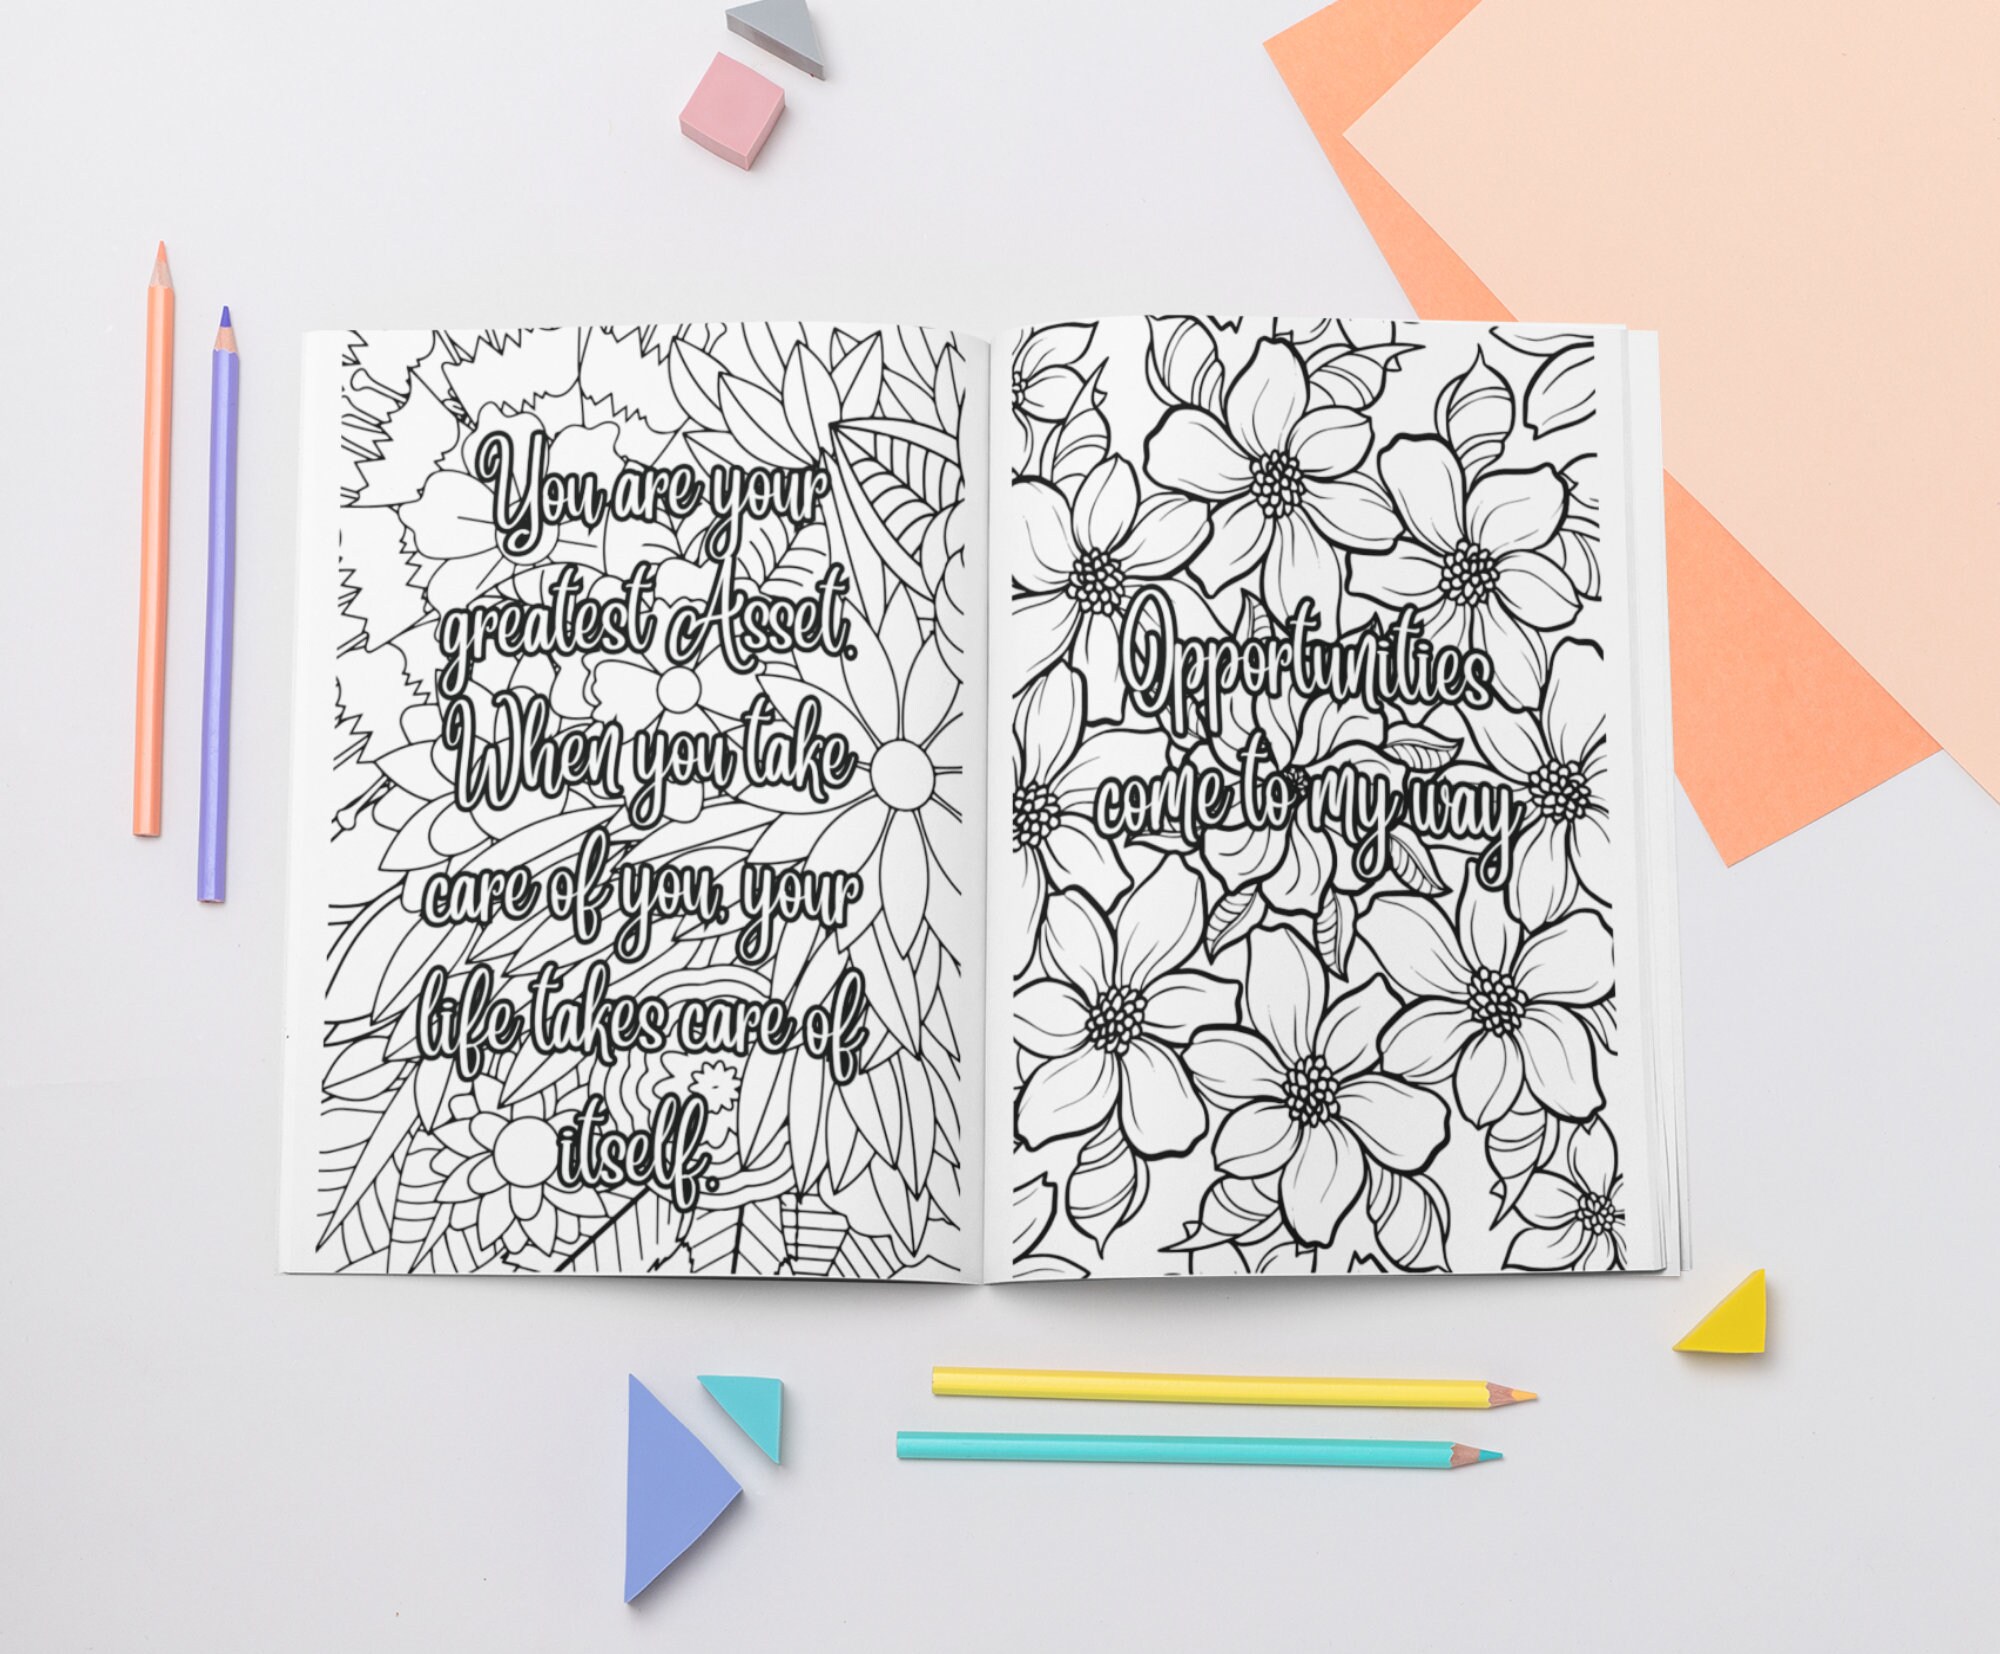 You are your
greatest Asset.
When you take
care of you, your
life takes care of
itself.
Opportunities
come to my way